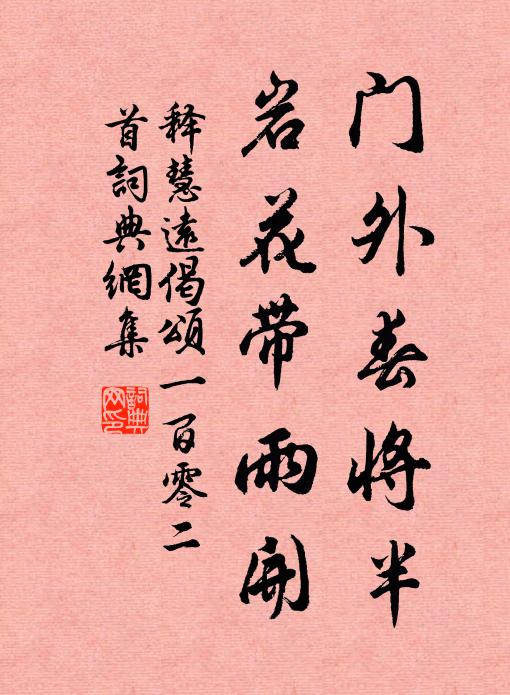 门外春将半
岩花带雨开
释慧远偈頌一百零二
首詞典網集
詞典
网印